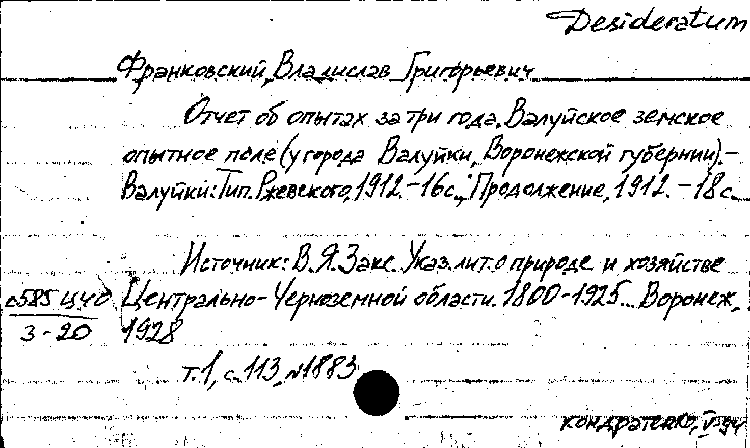 Desideratum
Франковский, Владислав Григорьевич
Отчет об опытах за три года. Валуйское земское
опытное поле (у города Валуйки, Воронежской губернии). –
Валуйки: Тип. Ржевского, 1912. – 16 с.; Продолжение, 1912. – 18 с.
Источник: В.Я. Закс. Указ. лит. о природе и хозяйстве
585 ЦЧО Центрально-Черноземной области. 1800-1925. Воронеж,
3-20 1928
т. 1, с. 113, №1883